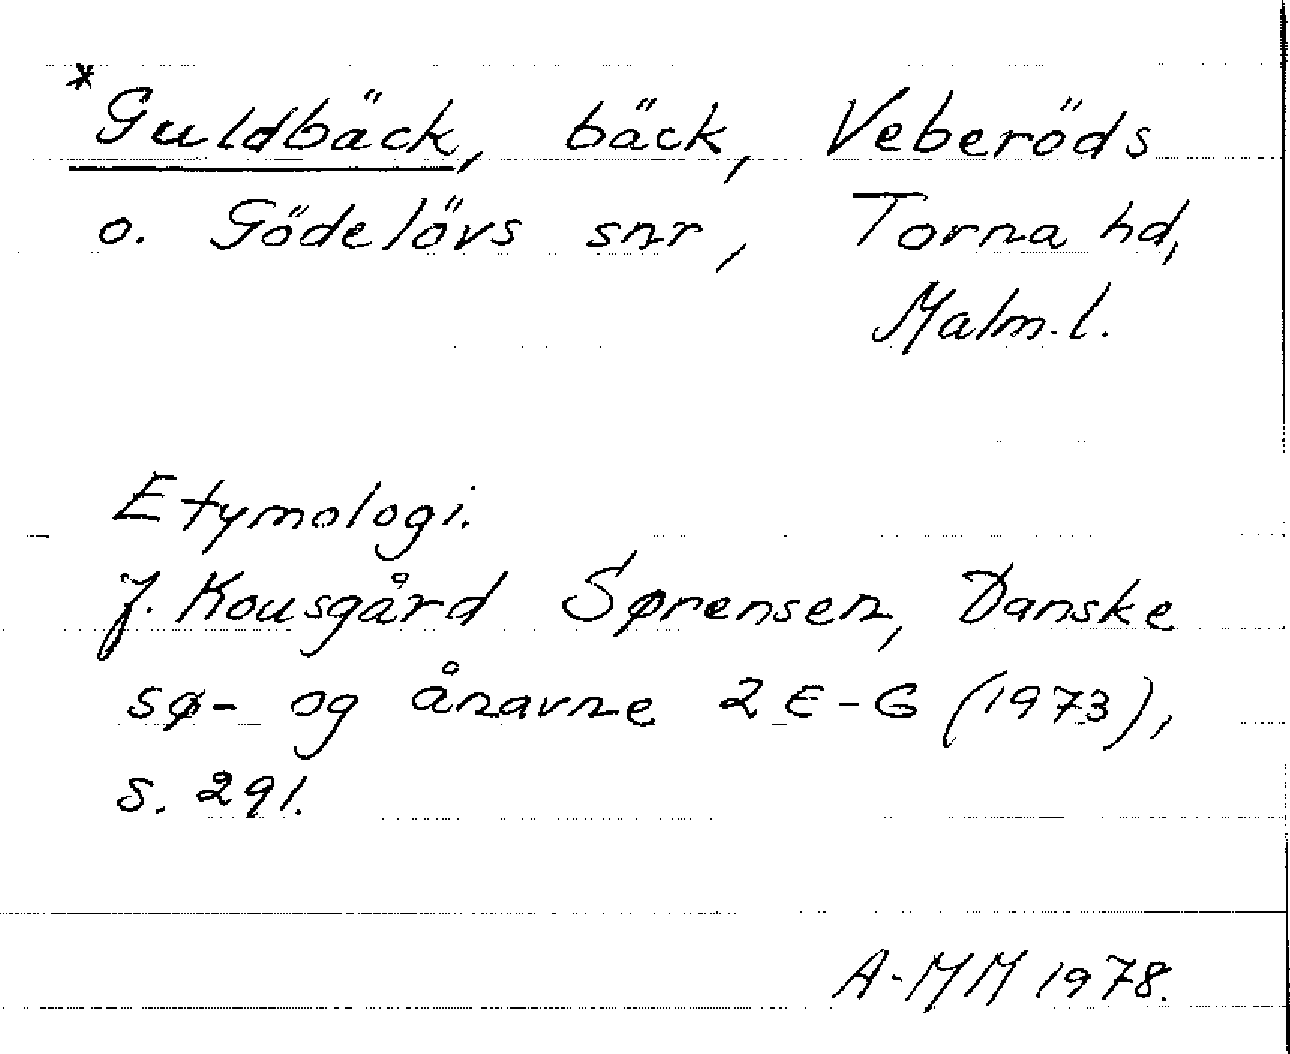 *Guldbäck, bäck, Veberöds
o. Gödelövs snr, Torna hd,
Malm. l.
Etymologi.
J. Kousgård Sørensen, Danske
sø- og ånavne 2 E-G (1973),
s. 291.
A-MM 1978.